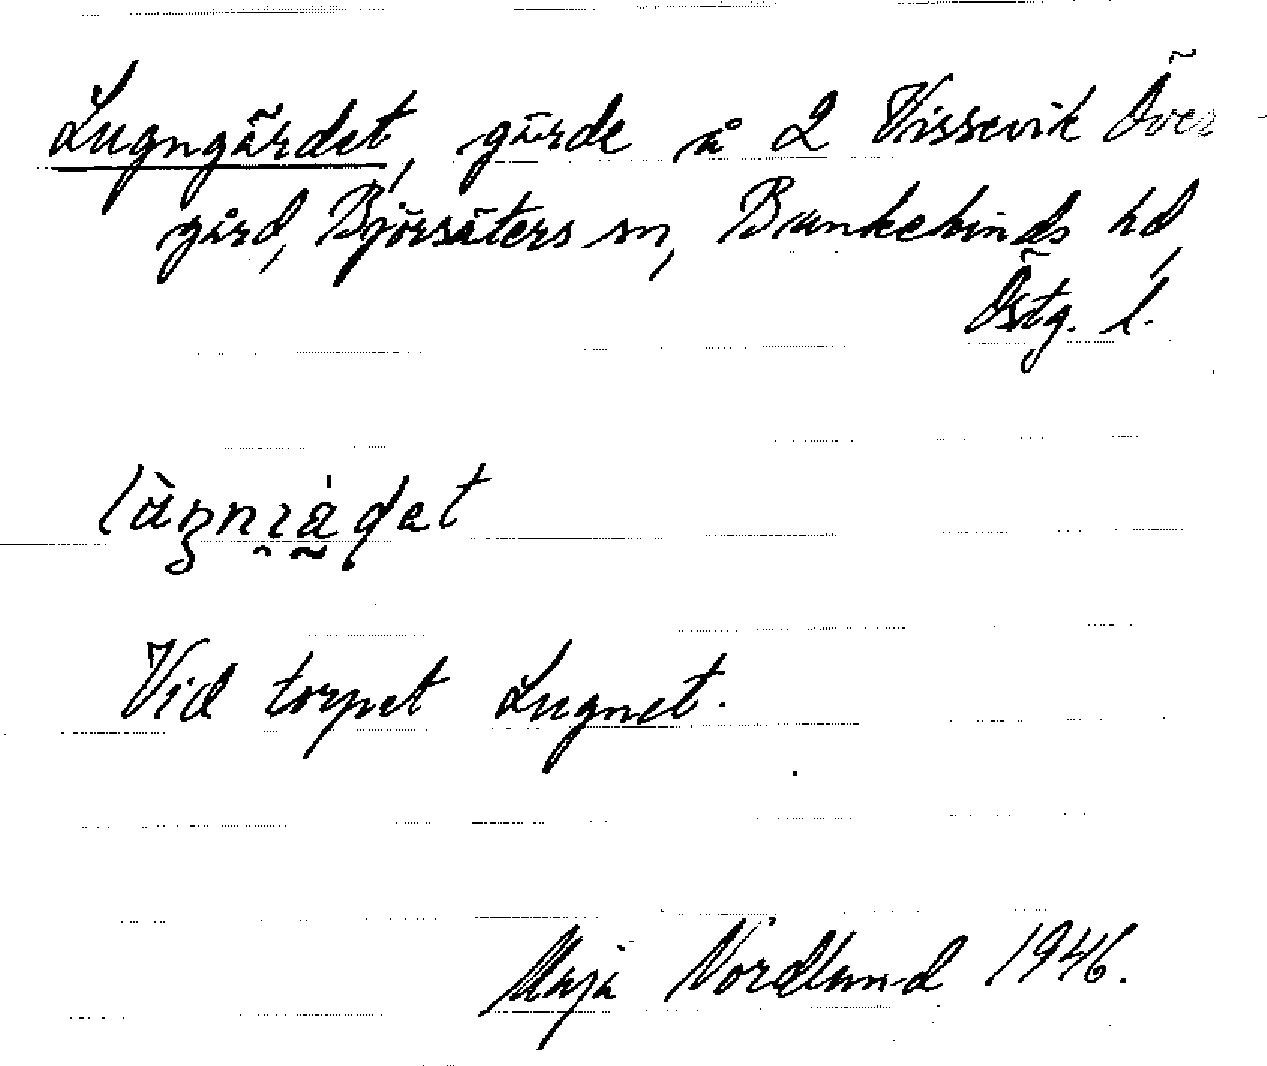 Lugngärdet, gärde å 2 Vissevik Över
gård, Björsäters sn, Bankekinds hd,
Östg. l.
Vid torpet Lugnet.
Maja Nordlund 1946.